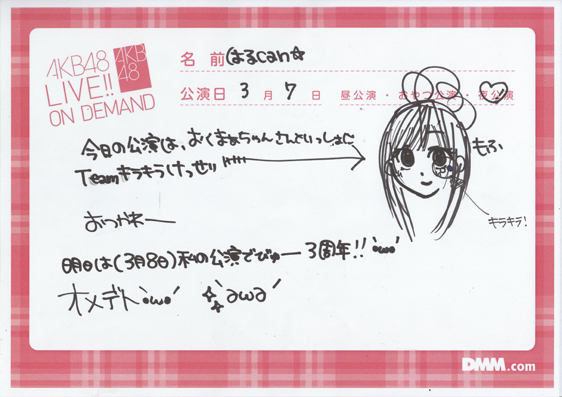 AKB48
LIVE!!
ON DEMAND
AKB
48
名 前 はるcan☆
公演日 3 月 7 日 昼公演・おやつ公演・夜公演
今日の公演は、おくまぁちゃんさんといっしょに
Teamキラキラけっせい!!!!!
もふ
キラキラ!
おつかれー
明日は(3月8日)私の公演でびゅー3周年!!'ω'
オメデト'ω' 'awa'
DMM.com